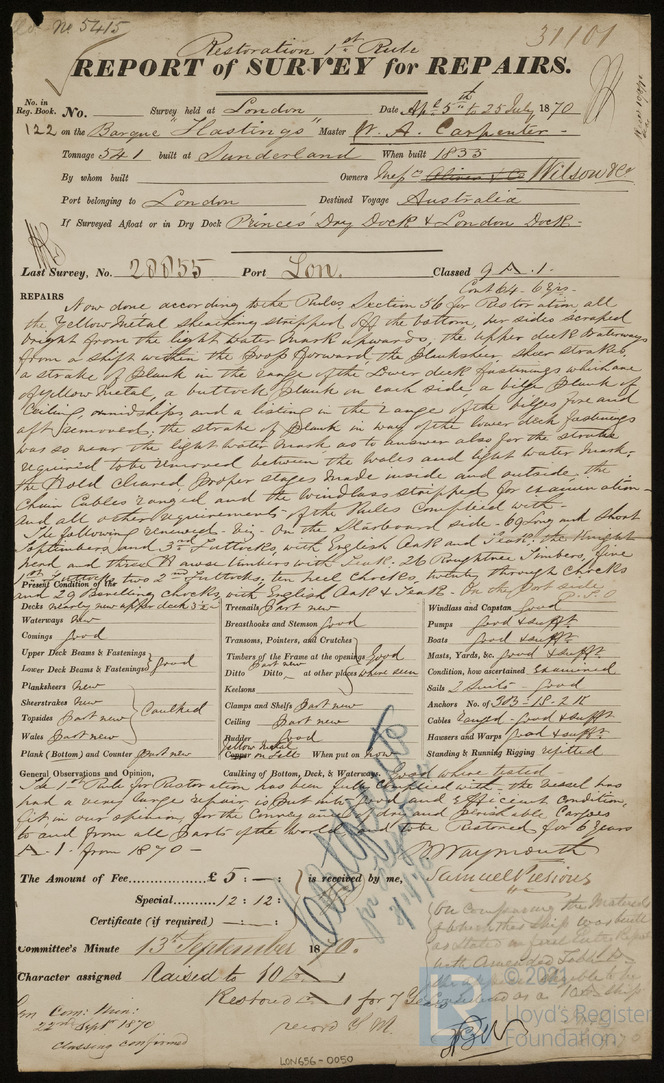 No 5415
31101
Restoration 1st Rule
REPORT of SURVEY for REPAIRS.
No. in Reg. Book. No. Survey held at London Date Apl 5th to 25 July 1870
122 on the Barque "Hastings" Master W. A. Carpenter
Tonnage 541 built at Sunderland When built 1833
By whom built Owners Wilson & Co
Port belonging to London Destined Voyage Australia
If Surveyed Afloat or in Dry Dock Princes' Dry Dock & London Dock
Last Survey, No. 20055 Port Lon. Classed 9 A. 1.
Cont 64 - 6 yrs.
REPAIRS Now done according to the Rules Section 56 for Restoration all
the Yellow Metal sheathing stripped off the bottom, her sides scraped
bright from the light water mark upwards, the upper deck waterways
from a shift within the Poop forward the Planksheer, sheer strakes,
a strake of plank in the range of the lower deck fastenings which are
of yellow metal, a buttock plank on each side a bilge plank of
ceiling amidships and a listing in the range of the bilges fore and
aft removed; the strake of plank in way of the lower deck fastenings
was so near the light water mark as to answer also for the strake
required to be removed between the wales and light water mark;
the Hold cleared, proper stages made inside and outside, the
Chain Cables ranged and the windlass stripped for examination
and all other requirements of the Rules Complied with.
The following renewed viz. On the Starboard side - 6 Long and Short
Toptimbers and 3rd Futtocks, with English Oak and Teak, the Knight
head and three Hawse timbers with Teak. 26 Roughtree Timbers, five
1st Futtocks two 2nd Futtocks, ten heel chocks, through chocks
and 29 chocks, with English Oak & Teak. On the Port side
P.T.O
Present Condition of the
Decks nearly new upper deck
Waterways New
Comings Good
Upper Deck Beams & Fastenings
Lower Deck Beams & Fastenings } Good
Planksheers New
Sheerstrakes New
Topsides Part new
Wales Part new } Caulked
Plank (Bottom) and Counter Part new
Treenails Part new
Breasthooks and Stemson Good
Transoms, Pointers, and Crutches
Timbers of the Frame at the openings Good
Ditto Ditto at other places Part new where seen
Keelsons
Clamps and Shelfs Part new
Ceiling Part new
Rudder Good
Yellow Metal
Copper on Felt When put on now
Caulking of Bottom, Deck, & Waterways, Good where tested
Windlass and Capstan Good
Pumps Good & sufft
Boats Good & sufft
Masts, Yards, &c. Good & sufft
Condition, how ascertained Examined
Sails 2 Suits - Good
Anchors No. of 3B-1S-2K
Cables Good & sufft
Hawsers and Warps Good & sufft
Standing & Running Rigging refitted
General Observations and Opinion,
The 1st Rule for Restoration has been fully complied with. The vessel has
had a very large repair is put into Good and Efficient Condition,
fit in our opinion, for the Conveyance of dry and perishable Cargoes
to and from all parts of the world and to be Restored for 6 Years
A. 1. from 1870 -
B Waymouth
The Amount of Fee......£5 : - : is received by me, Samuel
Special......12 : 12 :
Certificate (if required)
Committee's Minute 13th September 1870.
Character assigned Raised to 10 A
Restored A 1 for 7 Years
record Y.M.
Com: Min:
22nd Sept 1870
classing confirmed
On comparing the Materials
of which this Ship was built
as stated on first entry Report
with amended Table
LON656-0050
© 2021
Lloyd's Register
Foundation